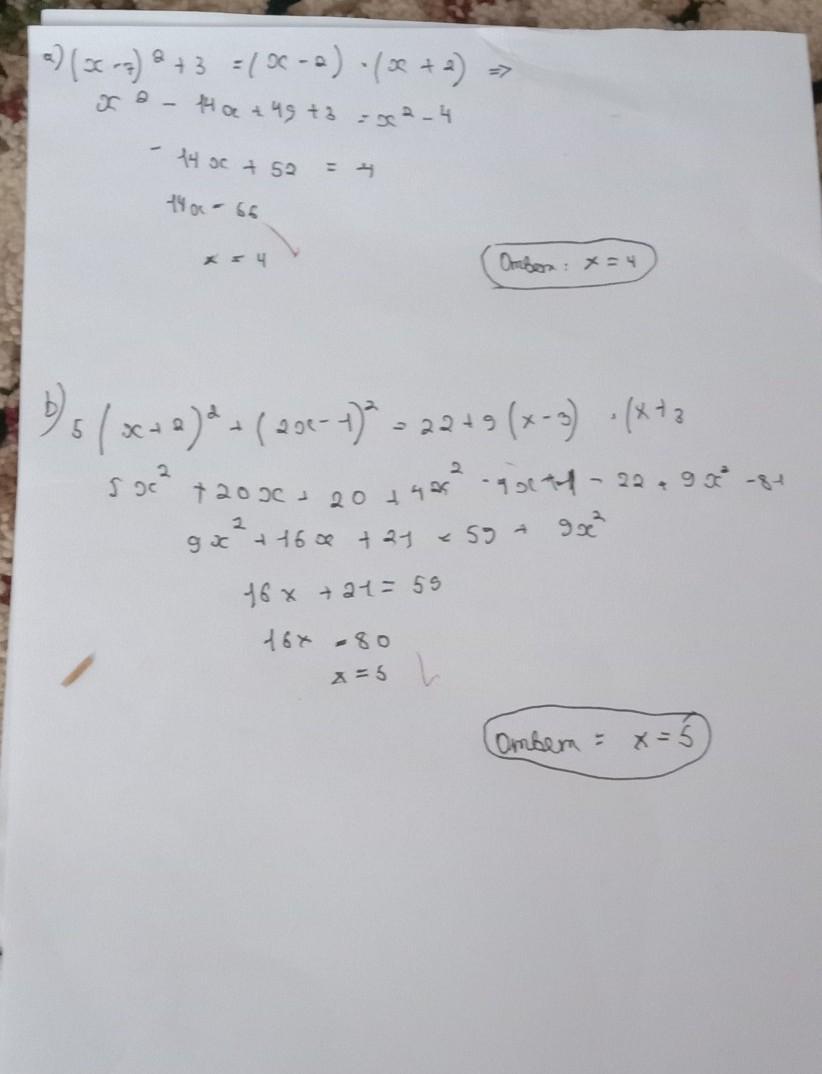 a) (x - 7)² + 3 = (x - 2) · (x + 2) =>
x² - 14x + 49 + 3 = x² - 4
- 14x + 52 = 4
14x - 56
x = 4
Ответ: x = 4
b) 5 (x + 2)² + (2x - 1)² = 22 + 9 (x - 3) · (x + 3
5x² + 20x + 20 + 4x² - 4x + 1 - 22 + 9x² - 81
9x² + 16x + 21 = 59 + 9x²
16x + 21 = 59
16x = 80
x = 5
Ответ = x = 5